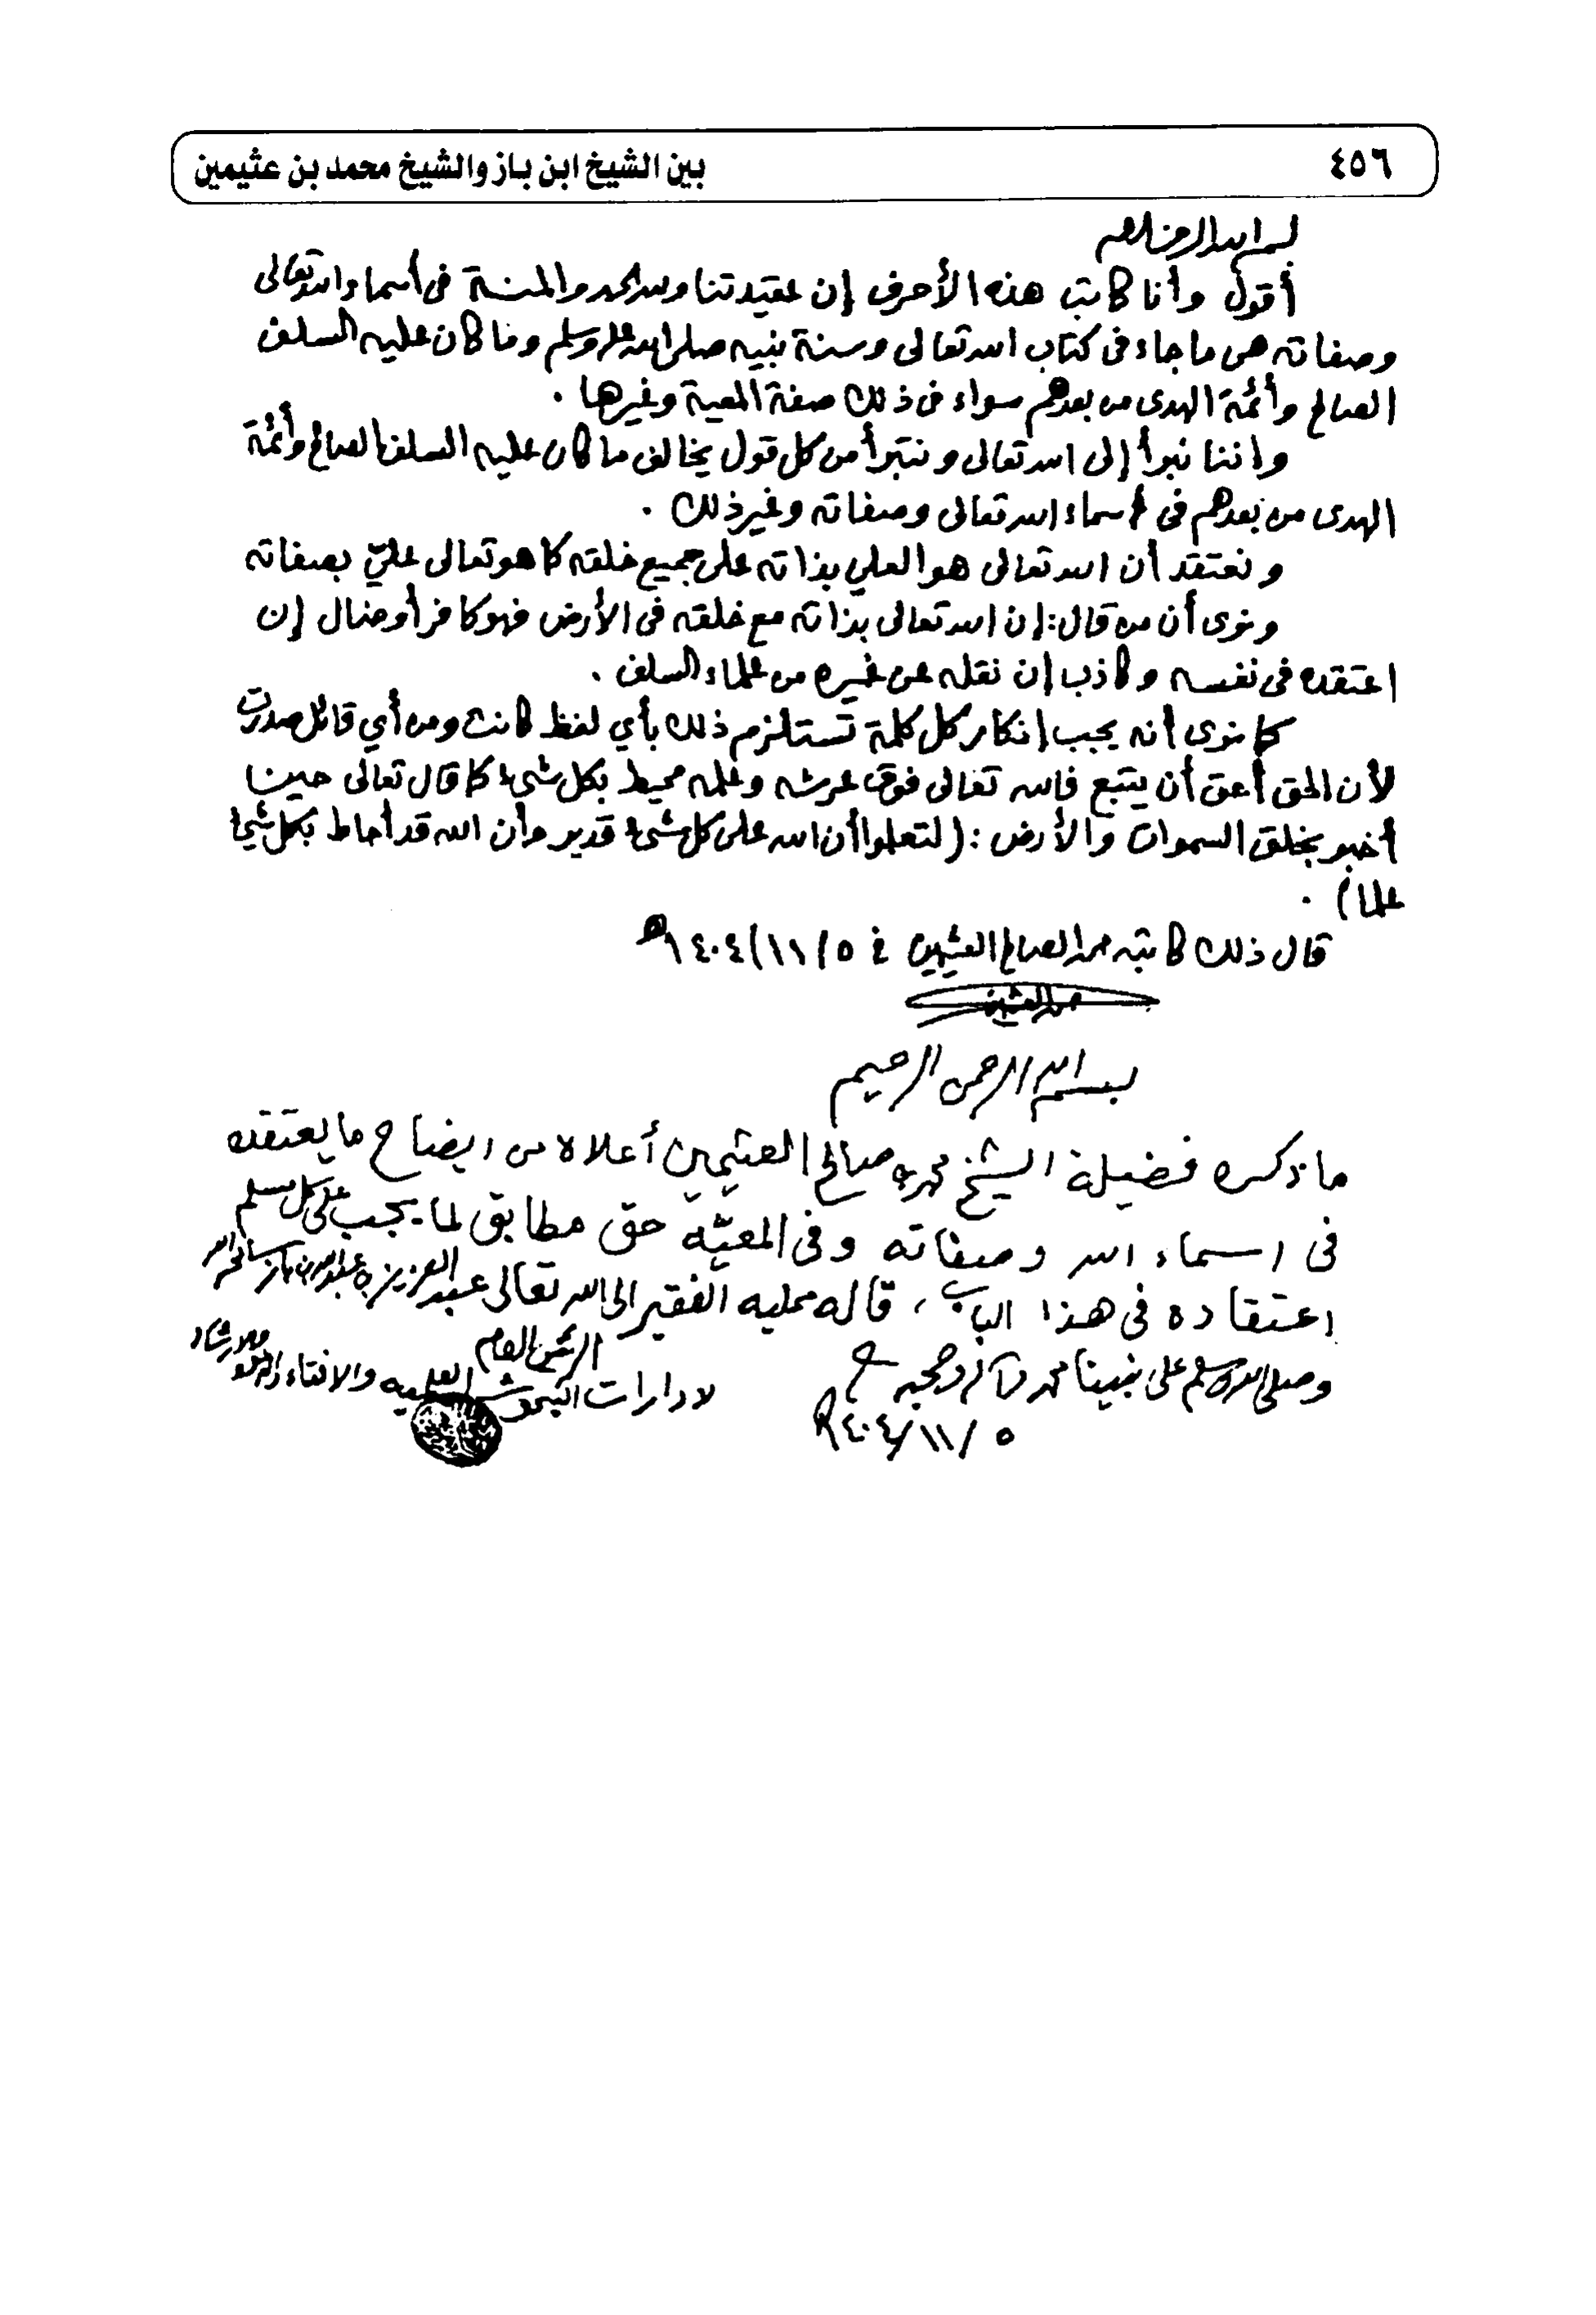 ٤٥٦
بين الشيخ ابن باز والشيخ محمد بن عثيمين
بسم الله الرحمن الرحيم
أقول وأنا كاتب هذه الأحرف إن عقيدتنا ولله الحمد والمنة في أسماء الله تعالى
وصفاته هي ما جاء في كتاب الله تعالى وسنة نبيه صلى الله عليه وسلم وما كان عليه السلف
الصالح وأئمة الهدى من بعدهم سواء في ذلك صفة المعية وغيرها .
واننا نبرأ إلى الله تعالى ونتبرأ من كل قول يخالف ما كان عليه السلف الصالح وأئمة
الهدى من بعدهم في أسماء الله تعالى وصفاته وغير ذلك .
ونعتقد أن الله تعالى هو العلي بذاته على جميع خلقه كما هو تعالى عليّ بصفاته
ونرى أن من قال : إن الله تعالى بذاته مع خلقه في الأرض فهو كافر أو ضال إن
اعتقده في نفسه وكاذب إن نقله عن غيره من علماء السلف .
كما نرى أنه يجب إنكار كل كلمة تستلزم ذلك بأي لفظ كانت ومن أي قائل صدرت
لأن الحق أحق أن يتبع فالله تعالى فوق عرشه وعلمه محيط بكل شيء كما قال تعالى حينما
أخبر بخلق السموات والأرض : (لتعلموا أن الله على كل شيء قدير وأن الله قد أحاط بكل شيء
علما) .
قال ذلك كاتبه محمد الصالح العثيمين في ٥/١١/١٤٠٤هـ
محمد العثيمين
بسم الله الرحمن الرحيم
ما ذكره فضيلة الشيخ محمد بن صالح العثيمين أعلاه من ايضاح ما يعتقده
في اسماء الله وصفاته وفي المعيّة حق مطابق لما يجب على كل مسلم
اعتقاده في هذا الباب ، قاله ممليه الفقير الى الله تعالى عبد العزيز بن عبد الله بن باز سامحه الله
الرئيس العام
لادارات البحوث العلميه والافتاء والدعوه والارشاد
وصلى الله وسلم على نبينا محمد وآله وصحبه
٥/١١/١٤٠٤هـ